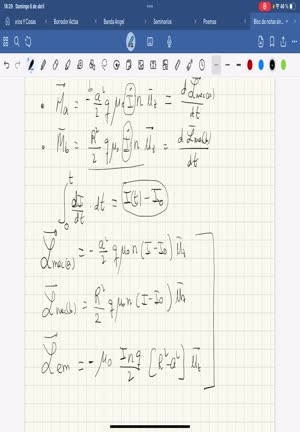 18:29 Domingo 6 de abril
40 %
Borrador Actas
Banda Angel
Seminarios
Poemas
Bloc de notas sin...
• M⃗a = -a²/2 q μ₀ İ n u⃗z = dL⃗mec(a)/dt
• M⃗b = R²/2 q μ₀ İ n u⃗z = dL⃗mec(b)/dt
∫₀ᵗ dI/dt · dt = I(t) - I₀
L⃗mec(a) = - a²/2 q μ₀ n (I - I₀) u⃗z
L⃗mec(b) = R²/2 q μ₀ n (I - I₀) u⃗z
L⃗em = - μ₀ I n q/2 [R² - a²] u⃗z